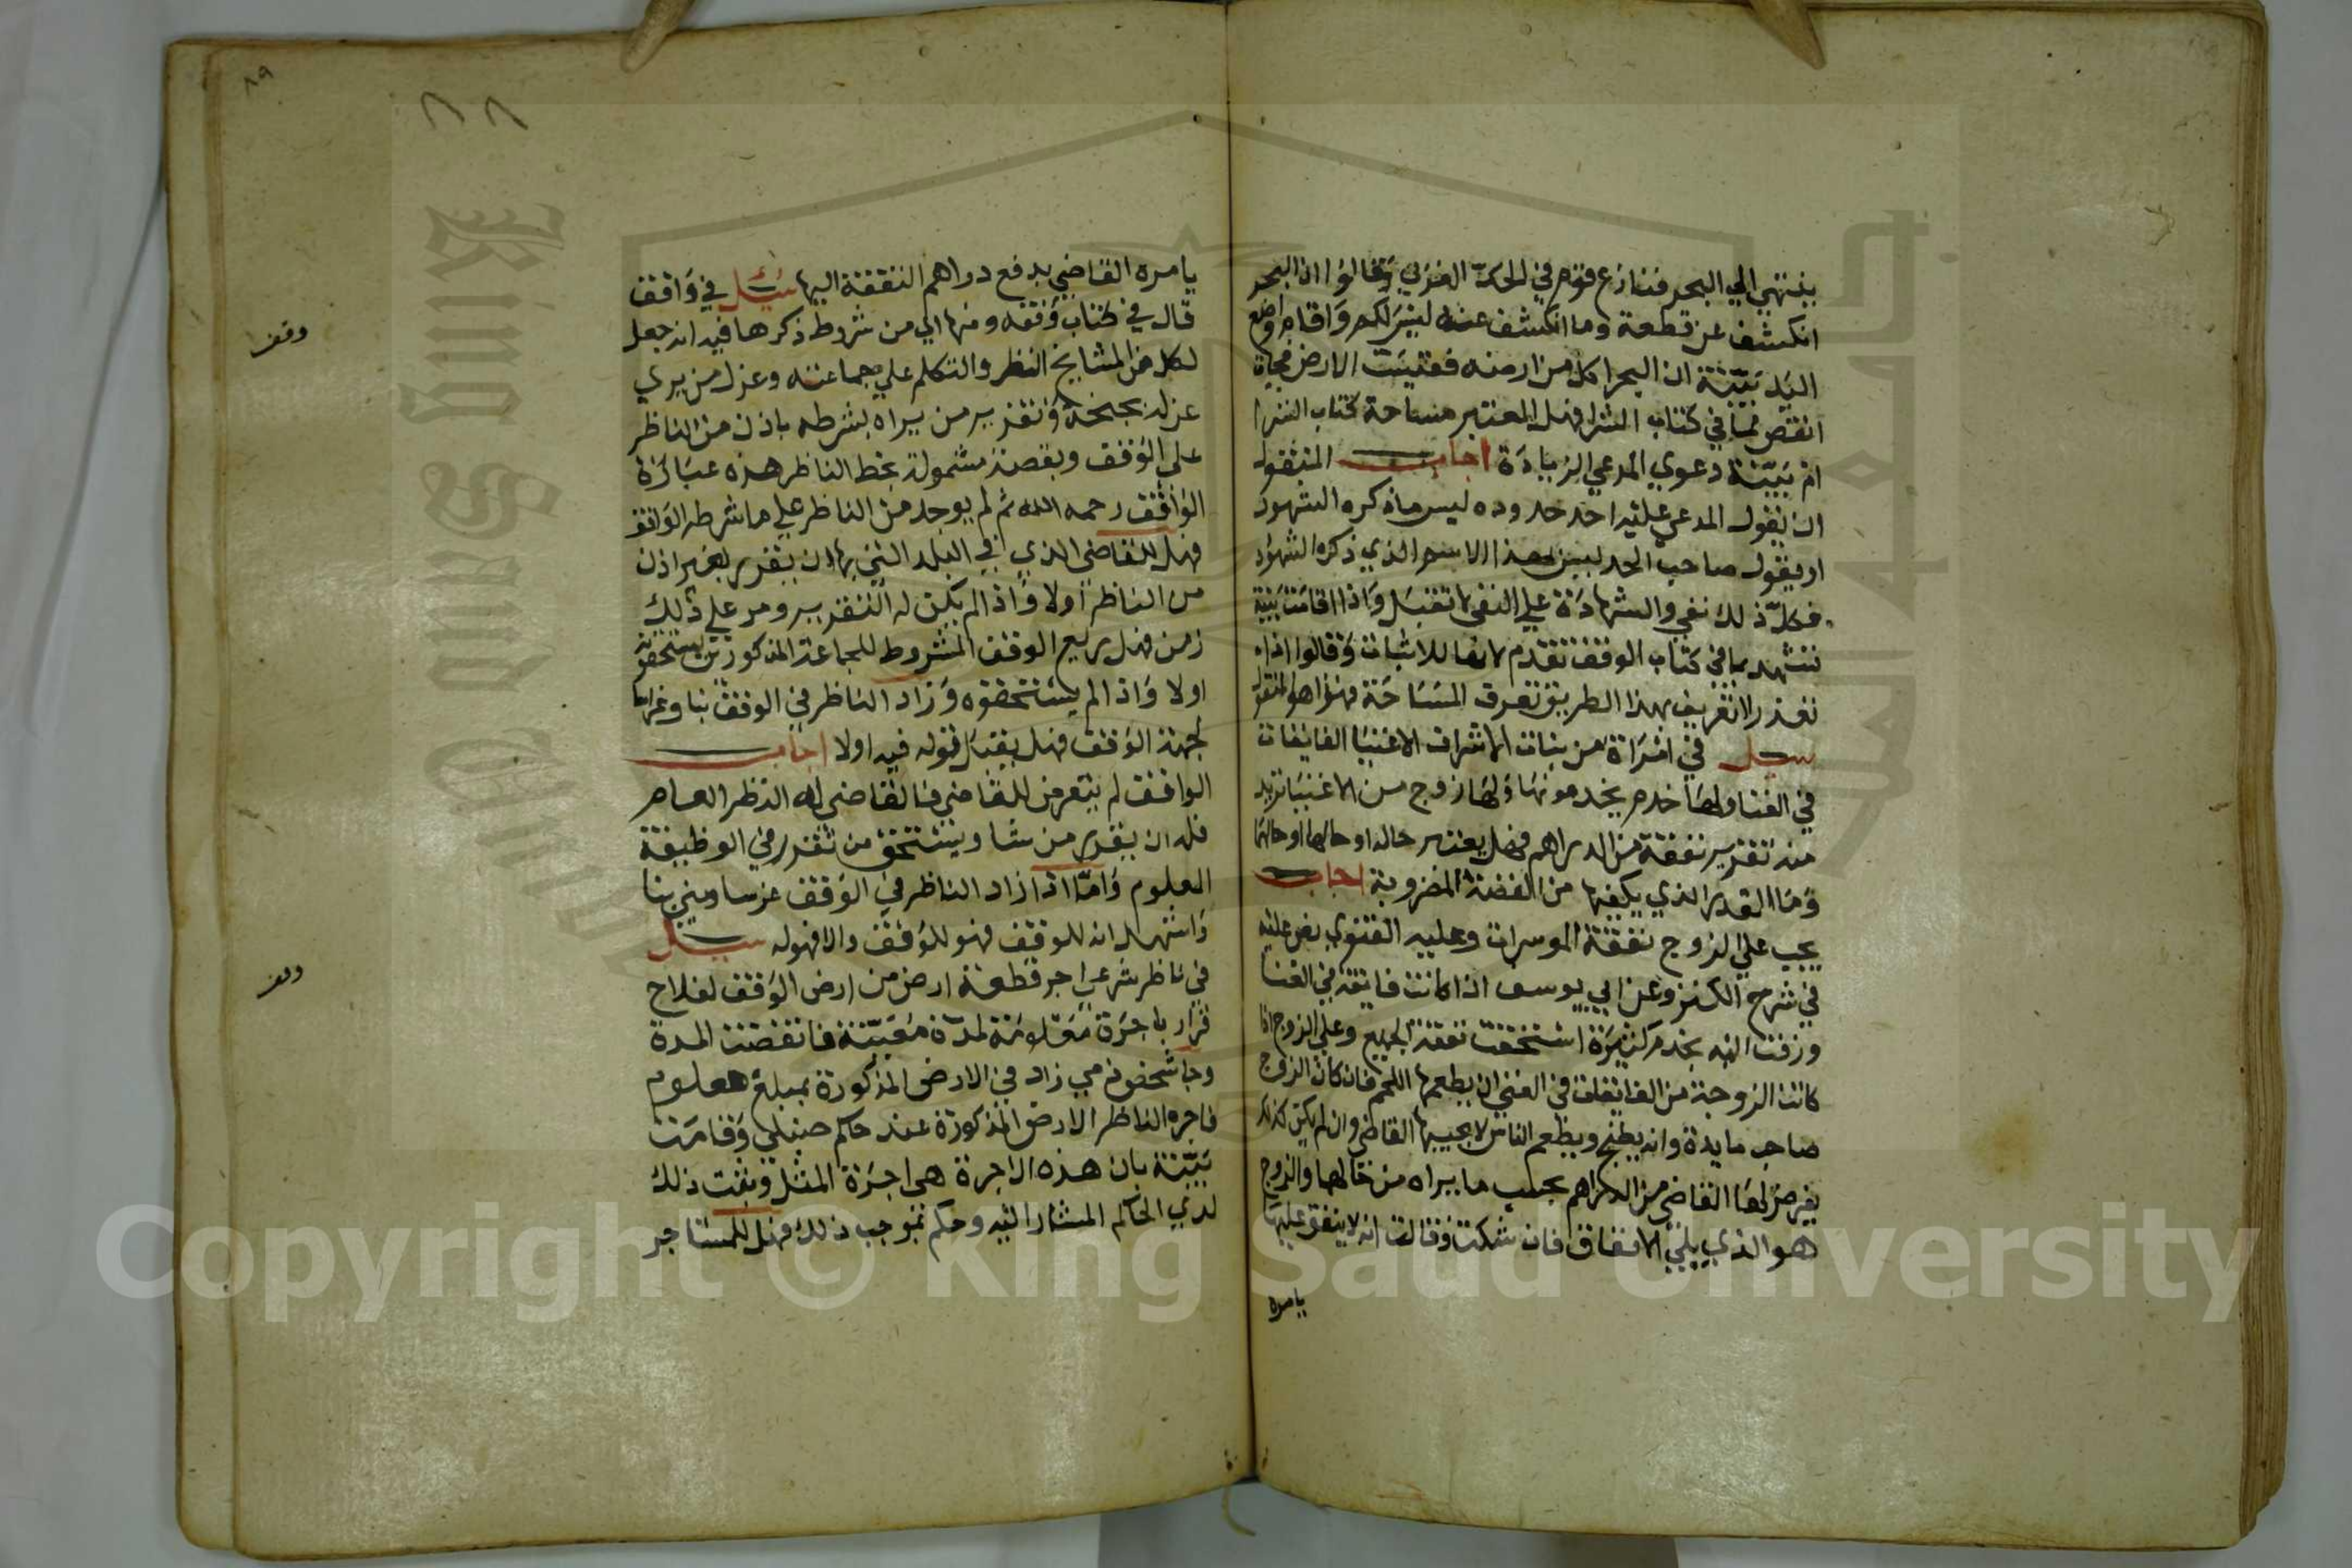 ينتهي الي البحر فتنازع قوم في الحد الغربي وقالوا ان البحر
انكشف عن قطعة وما انكشف عنه ليس لكم واقام واضع
اليد بينة ان البحر اكل من ارضه فبقيت الارض
انقص مما في كتاب الشرا فهل المعتبر مساحة كتاب الشرا
ام بينة دعوي المدعي الزيادة اجاب المنقول
ان يقول المدعي عليه احد حدوده ليس ما ذكره الشهود
او يقول صاحب الحد ليس بهذا الاسم الذي ذكره الشهود
فكل ذلك نفي والشهادة علي النفي لا تقبل واذا اقامت بينة
تشهد بما في كتاب الوقف تقدم لانها للاثبات وقالوا اذا
تعذر التعريف بهذا الطريق تعرف المساحة فهذا هو المنقول
سيل في امراة من بنات الاشراف الاغنيا الفايقات
في الغنا ولها خدم يخدمونها ولها زوج من الاغنيا تريد
منه تقرير نفقة من الدراهم فهل يعتبر حاله او حالها او حالهما
وما القدر الذي يكفيها من الفضة المضروبة اجاب
يجب علي الزوج نفقة الموسرات وعليه الفتوي نص عليه
في شرح الكنز وعن ابي يوسف اذا كانت فايقة في الغنا
وزفت اليه بخدم كثيرة استحقت نفقة الجميع وعلي الزوج اذا
كانت الزوجة من الفايقات في الغني ان يطعمها اللحم فان كان الزوج
صاحب مايدة وانه يطبخ ويطعم الناس لا يجيبها القاضي وان لم يكن كذلك
يفرض لها القاضي من الدراهم بحسب ما يراه من حالها والزوج
هو الذي يلي الانفاق فان شكت وقالت انه لا ينفق عليها
يامره
٨٩
٨٨
يامره القاضي بدفع دراهم النفقة اليها سيل في واقف
قال في كتاب وقفه ومنها الي من شروط ذكرها فيه انه جعل
لكل من المشايخ النظر والتكلم علي جماعته وعزل من يري
عزله بجنحة وتقرير من يراه بشرطه باذن من الناظر
علي الوقف وبقصة مشمولة بخط الناظر هذه عبارة
الواقف رحمه الله ثم لم يوجد من الناظر علي ما شرطه الواقف
فهل للقاضي الذي في البلد التي بها ان يقرر بغير اذن
من الناظر اولا واذا لم يكن له التقرير ومر علي ذلك
زمن فهل ريع الوقف المشروط للجماعة المذكورين يستحقونه
اولا واذا لم يستحقوه وزاد الناظر في الوقف بنا وغراسا
لجهة الوقف فهل يقبل قوله فيه اولا اجاب
الواقف لم يتعرض للقاضي فالقاضي له النظر العام
فله ان يقرر من شا ويستحق من تقرر في الوظيفة
المعلوم واما اذا زاد الناظر في الوقف غرسا وبني بنا
واشهد انه للوقف فهو للوقف والا فهو له سيل
في ناظر شرعي اجر قطعة ارض من ارض الوقف لفلاح
قرار باجرة معلومة لمدة معينة فانقضت المدة
وجا شخص زاد في الارض المذكورة بمبلغ معلوم
فاجره الناظر الارض المذكورة عند حاكم حنبلي وقامت
بينة بان هذه الاجرة هي اجرة المثل وثبت ذلك
لدي الحاكم المشار اليه وحكم بموجب ذلك فهل للمستاجر
وقف
وقف
King Saud University
Copyright © King Saud University